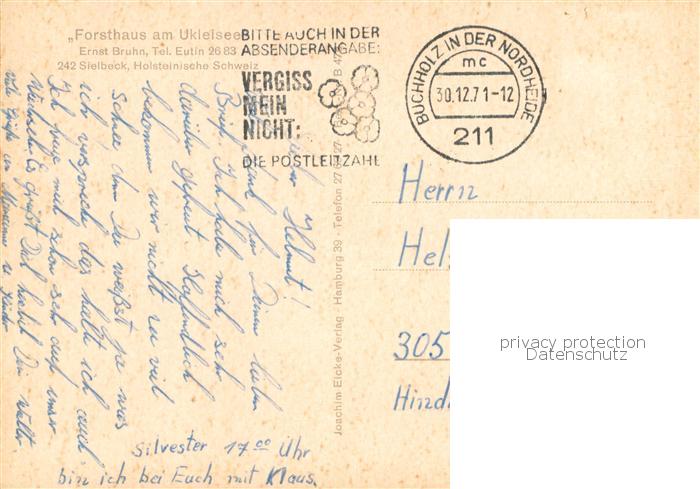 „Forsthaus am Ukleisee
Ernst Bruhn, Tel. Eutin 26 83
242 Sielbeck, Holsteinische Schweiz
BITTE AUCH IN DER
ABSENDERANGABE:
VERGISS
MEIN
NICHT:
DIE POSTLEITZAHL
BUCHHOLZ IN DER NORDHEIDE
mc
30.12.71-12
211
Joachim Eicke-Verlag · Hamburg 39 · Telefon 27
Lieber Helmut!
Dank für Deinen lieben
Brief. Ich habe mich sehr
darüber gefreut. Hoffentlich
bekommen wir nicht zu viel
Schnee denn Du weißt ja was
ich verspreche das halte ich auch.
Ich freue mich schon sehr auf unser
Es grüßt Dich herzl. Dein Walter
viele Grüße an u. Kinder
Silvester 17⁰⁰ Uhr
bin ich bei Euch mit Klaus.
Herrn
Hel
305
Hind
privacy protection
Datenschutz